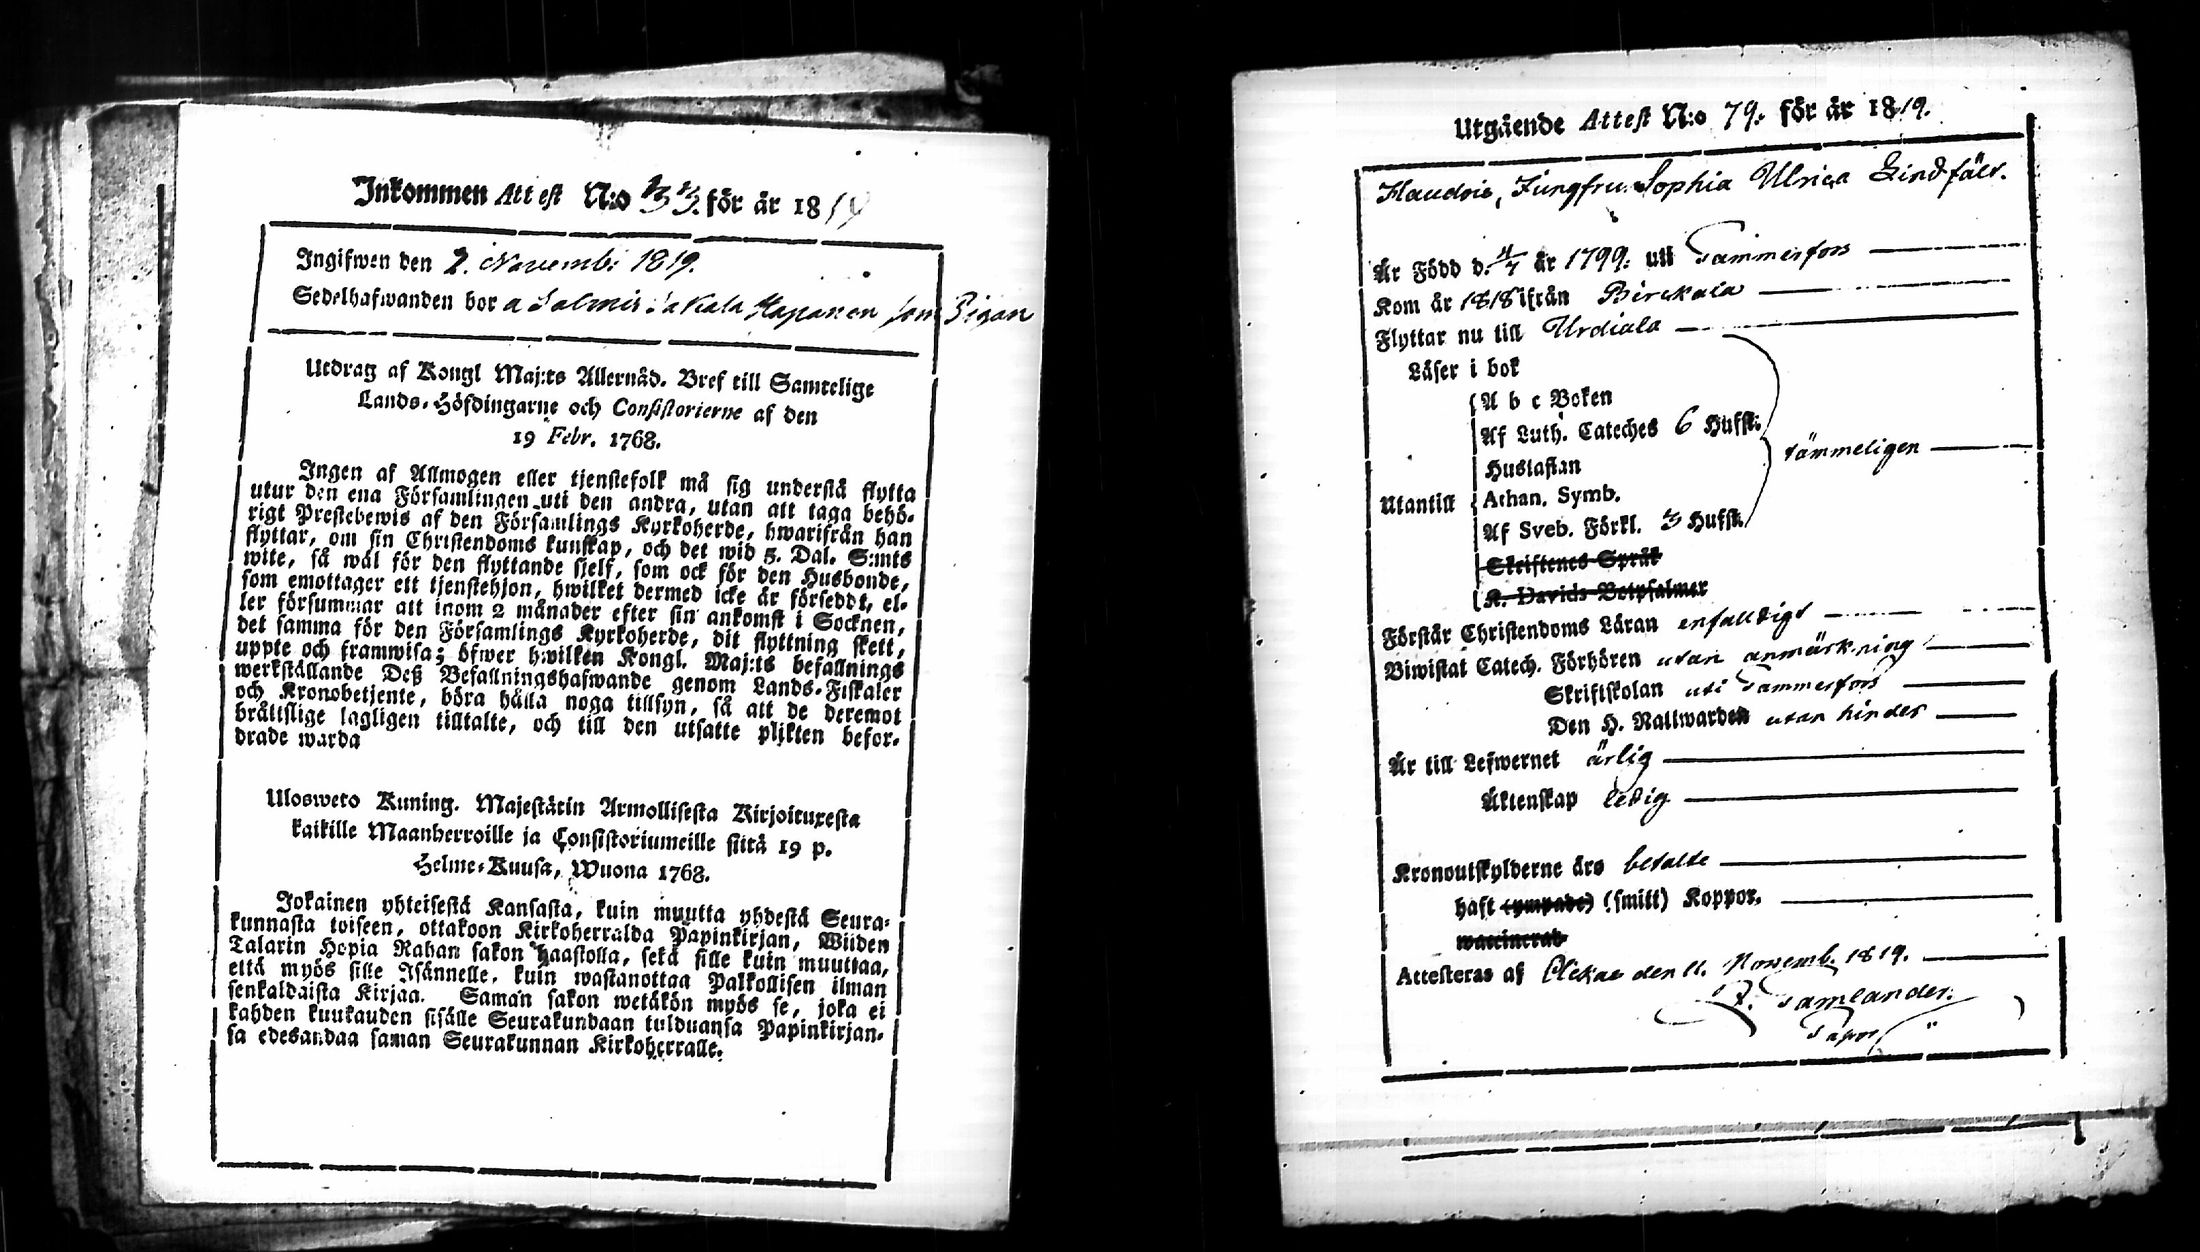 Inkommen Attest N:o 33. för år 1819
Ingifwen den 2. Novemb: 1819.
Sedelhafwanden bor a Salmis Hapanen som Pigan
Utdrag af Kongl Maj:ts Allernåd. Bref till Samtelige
Lands-Höfdingarne och Consistorierne af den
19 Febr. 1768.
Ingen af Allmogen eller tjenstefolk må sig understå flytta
utur den ena Församlingen uti den andra, utan att taga behö-
rigt Prestebewis af den Församlings Kyrkoherde, hwarifrån han
flyttar, om sin Christendoms kunskap, och det wid 5. Dal. S:mts
wite, så wäl för den flyttande sjelf, som ock för den Husbonde,
som emottager ett tjenstehjon, hwilket dermed icke är försedt, el-
ler försummar att inom 2 månader efter sin ankomst i Socknen,
det samma för den Församlings Kyrkoherde, dit flyttning skett,
uppte och framwisa; öfwer hwilken Kongl. Maj:ts befallnings
werkställande Deß Befallningshafwande genom Lands-Fiskaler
och Kronobetjente, böra hålla noga tillsyn, så att de deremot
bråttslige lagligen tilltalte, och till den utsatte plikten befor-
drade warda
Ulosweto Kuning. Majestätin Armollisesta Kirjoituxesta
kaikille Maanherroille ja Consistoriumeille siitä 19 p.
Helme-Kuusa, Wuona 1768.
Jokainen yhteisestä Kansasta, kuin muutta yhdestä Seura-
kunnasta toiseen, ottakoon Kirkoherralda Papinkirjan, Wiiden
Talarin Hopia Rahan sakon haastolla, sekä sille kuin muuttaa,
että myös sille Isännelle, kuin wastanottaa Palkollisen ilman
senkaldaista Kirjaa. Saman sakon wetäkön myös se, joka ei
kahden kuukauden sisälle Seurakundaan tulduansa Papinkirjan-
sa edesandaa saman Seurakunnan Kirkoherralle.
Utgående Attest N:o 79. för år 1819.
Jungfru Sophia Ulrica Lindfält.
Är Född d. 4/7 år 1799. uti Tammerfors
Kom år 1818 ifrån Birckala
Flyttar nu till Urdiala
Läser i bok
A b c Boken
Af Luth. Cateches 6 Hufst.
Hustaflan
Utantill Athan. Symb.
Af Sveb. Förkl. 3 Hufst.
tämmeligen
Skriftenes Språk
K. Davids Botpsalmer
Förstår Christendoms Läran enfalldigt
Biwistat Catech. Förhören utan anmärkning
Skriftskolan uti Tammerfors
Den H. Nattwarden utan hinder
Är till Lefwernet ärlig
Äktenskap ledig
Kronoutskylderne äro betalte
haft (ympade) (smitt) Koppor.
waccinerat
Attesteras af den 11. Novemb. 1819.
Tamlander.